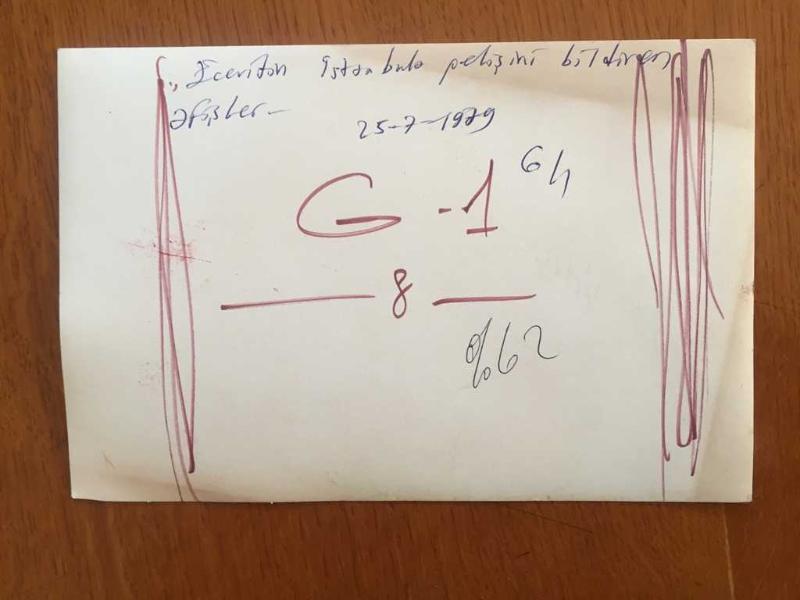 Ecevitin İstanbula gelişini bildiren
afişler—
25-7-1979
6/1
G-1
8
%62